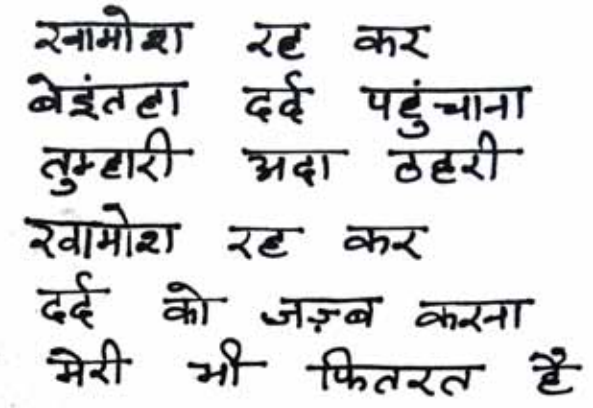 खामोश रह कर
बेइंतहा दर्द पहुंचाना
तुम्हारी अदा ठहरी
खामोश रह कर
दर्द को जज़्ब करना
मेरी भी फितरत है